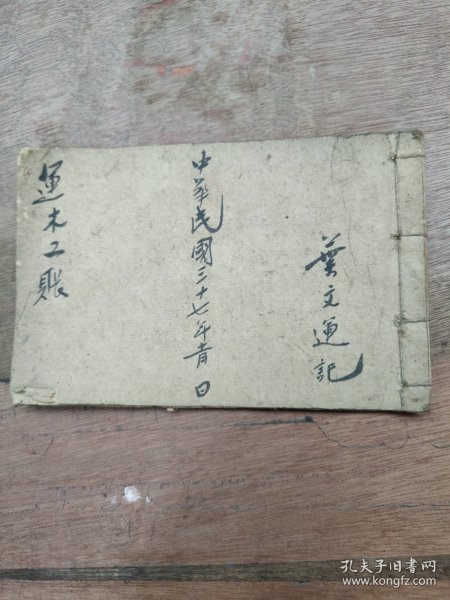 葉文運記
中華民國三十七年青日
運木工賬
孔夫子旧书网
www.kongfz.com